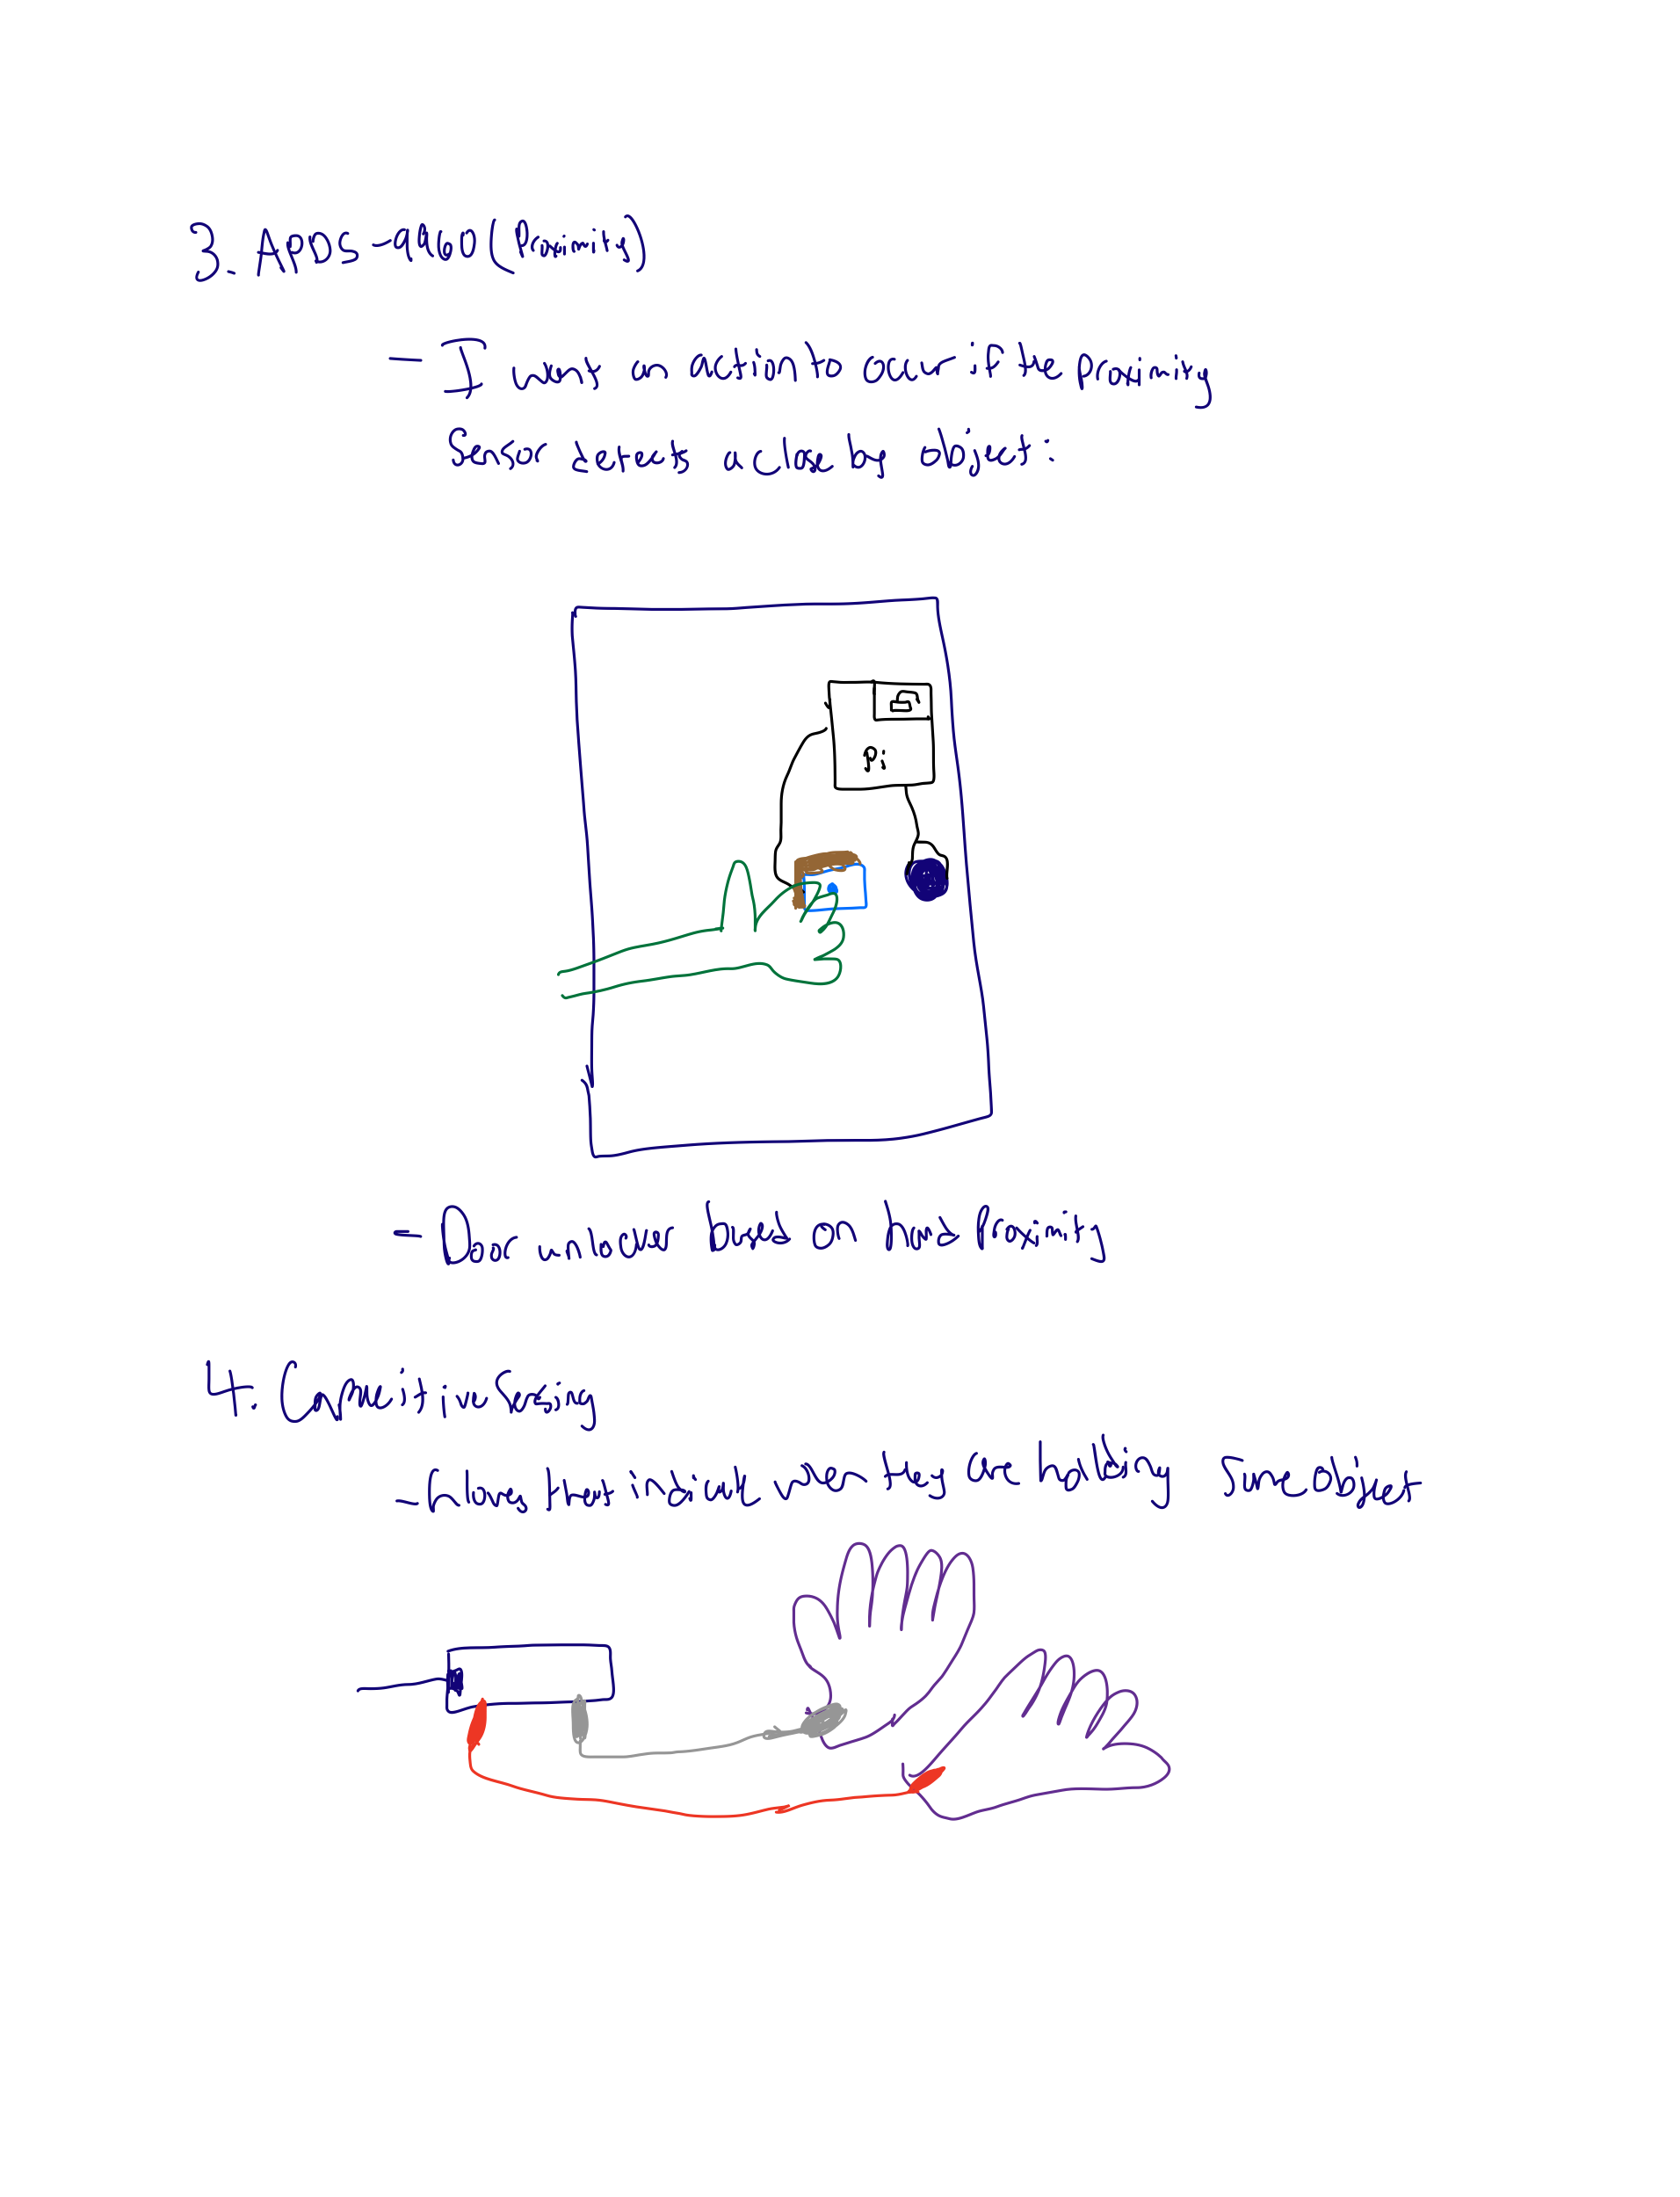 3. APDS-9960 (Proximity)
- I want an action to occur if the proximity
Sensor detects a close by object:
Pi
- Door unlocker based on hand Proximity
4. Capacitive Sensing
- Gloves that indicate when they are holding same object